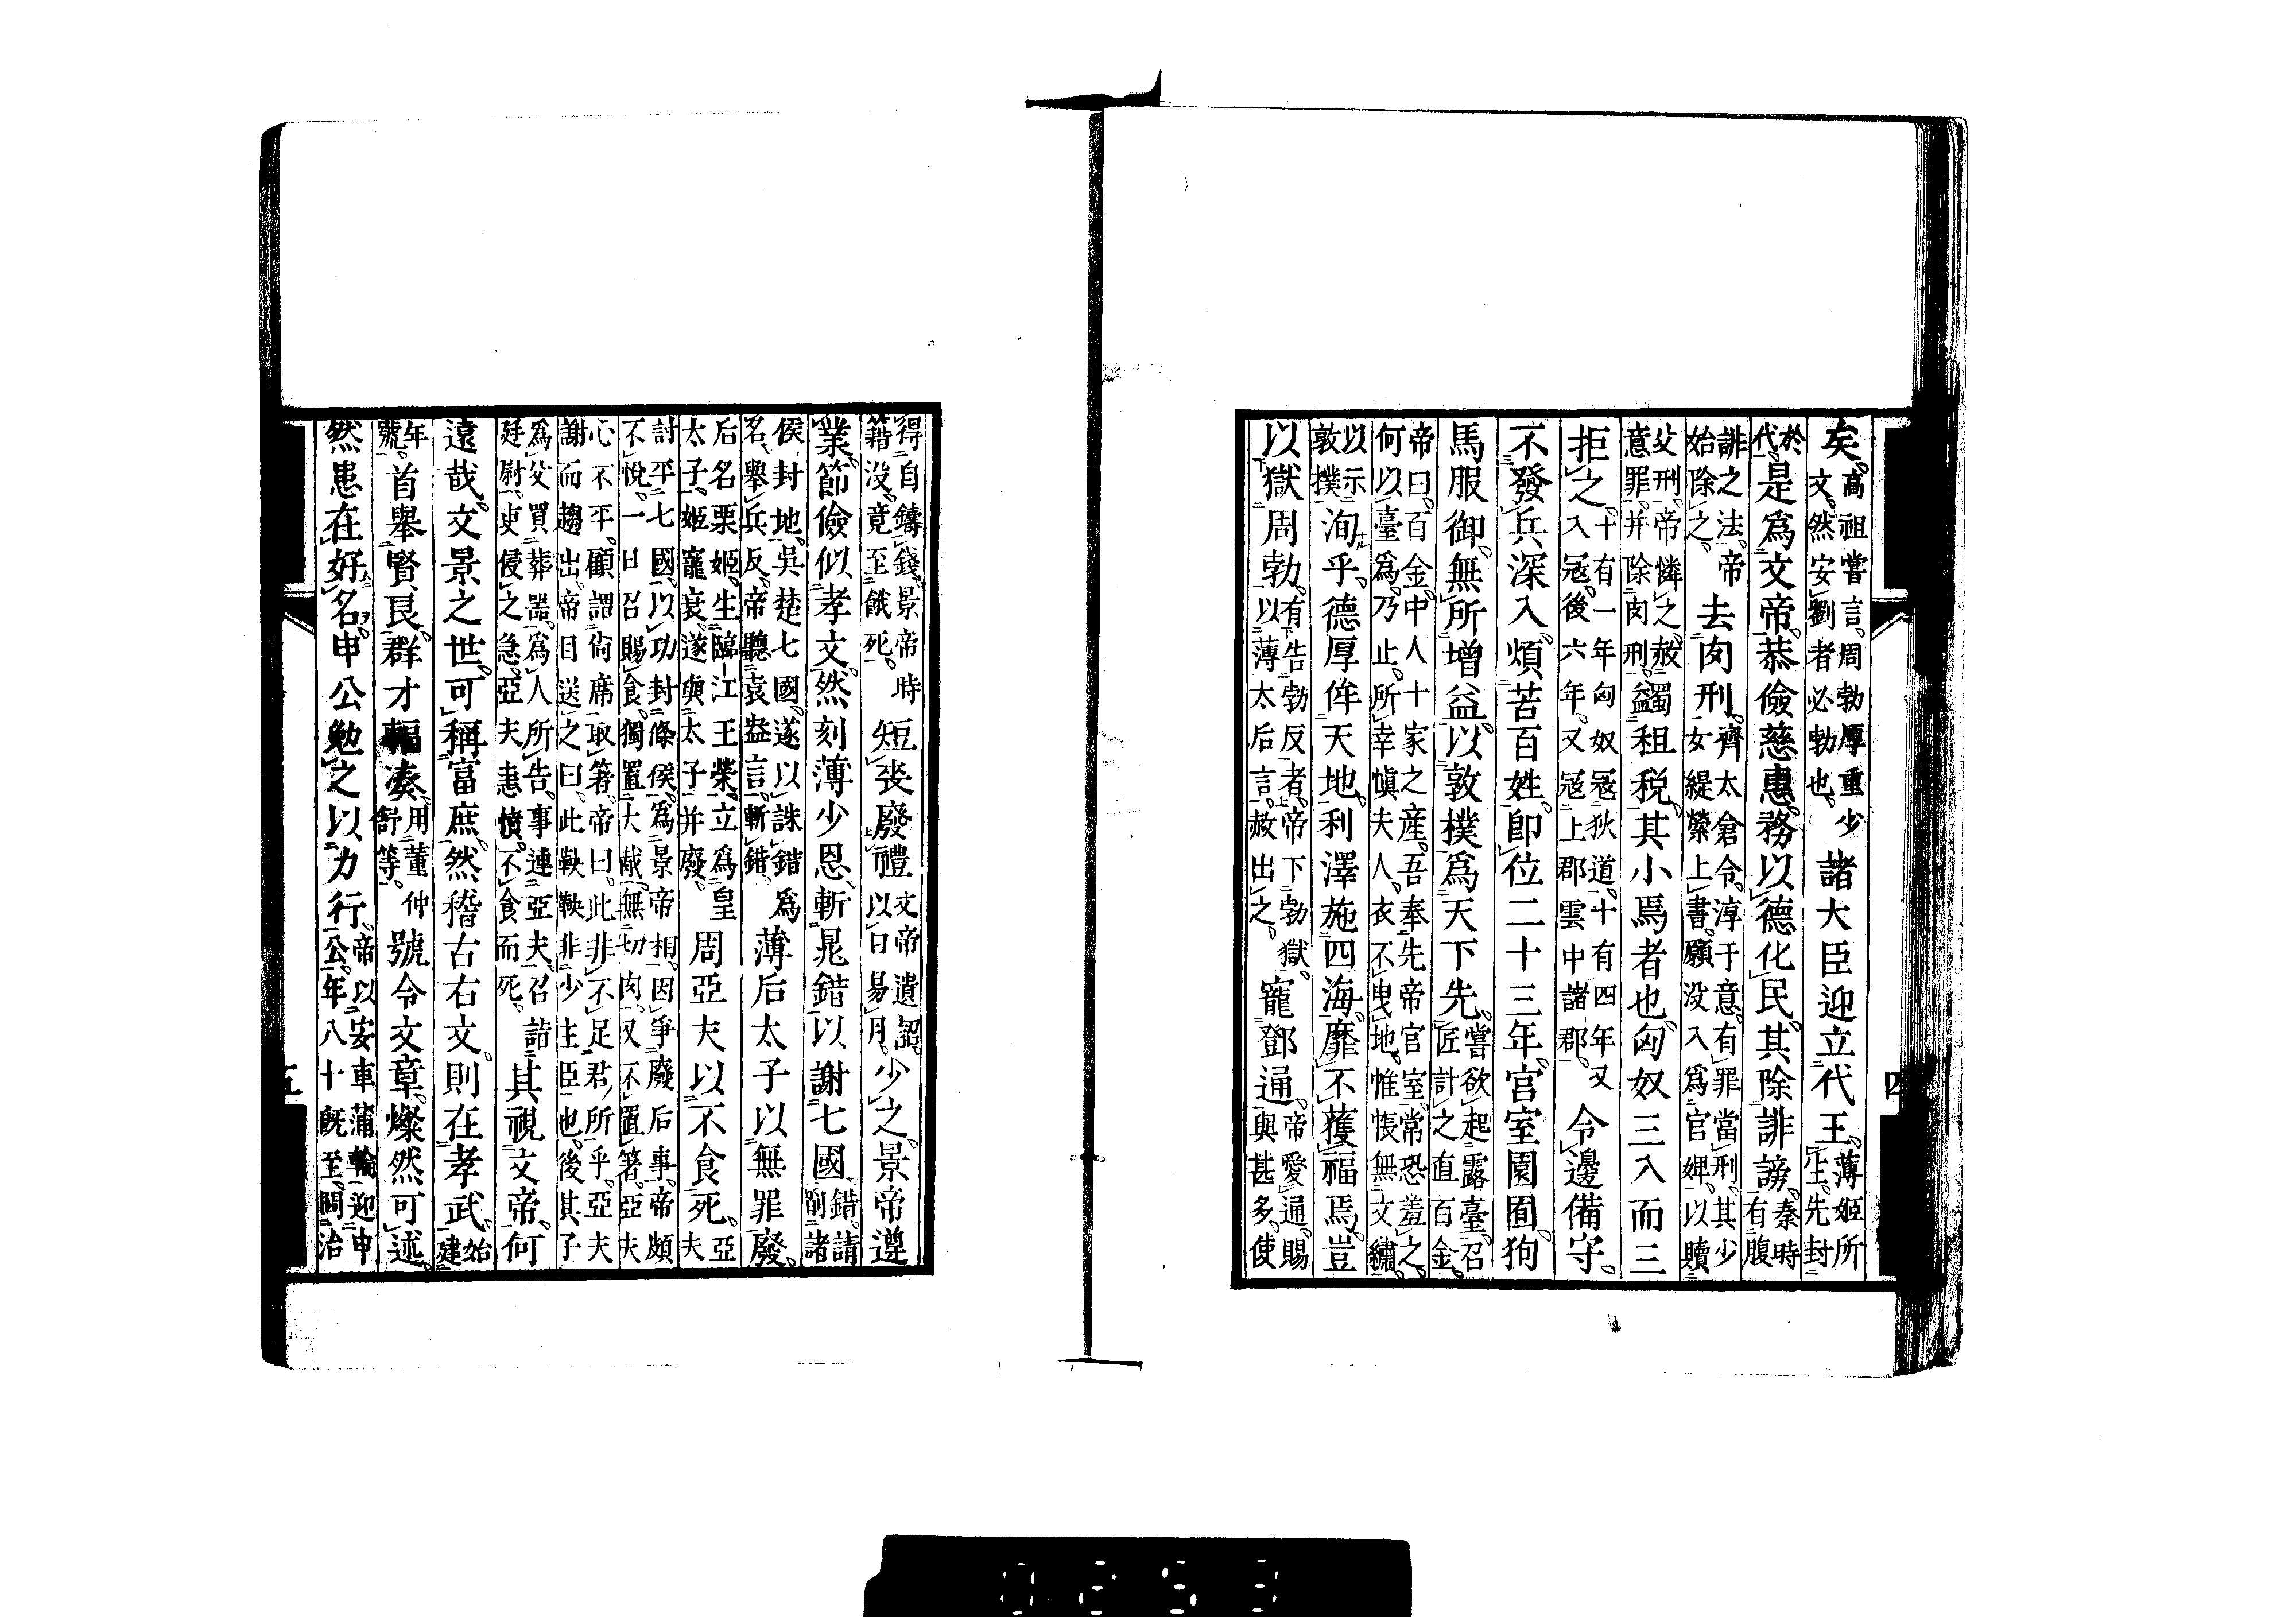 矣。高祖嘗言。周勃厚重少文。然安劉者必勃也。諸大臣迎立代王。薄姬所生。先封
於代。是爲文帝。恭儉慈惠。務以德化民。其除誹謗。秦時有腹
誹之法。帝始除之。去肉刑。齊太倉令。淳于意。有罪當刑。其少女緹縈上書。願没入爲官婢以贖
父刑。帝憐之。赦意罪。并除肉刑。蠲租税。其小焉者也。匈奴三入而三
拒之。十有一年匈奴寇狄道。十有四年又入寇。後六年。又寇上郡雲中諸郡。令邊備守。
不發兵深入。煩苦百姓。卽位二十三年。宮室園囿。狗
馬服御。無所增益。以敦樸爲天下先。嘗欲起露臺。召匠計之。直百金。
帝曰。百金。中人十家之産。吾奉先帝官室。常恐羞之。何以臺爲。乃止。所幸愼夫人。衣不曳地。惟帳無文繡。
以示敦撲。洵乎。德厚侔天地。利澤施四海。靡不獲福焉。豈
以獄周勃。有告勃反者。帝下勃獄。以薄太后言。赦出之。寵鄧通。帝愛通。賜與甚多。使
四
得自鑄錢。景帝時籍没。竟至餓死。短喪廢禮。文帝遺詔。以日易月。少之。景帝遵
業。節儉似孝文。然刻薄少恩。斬晁錯以謝七國。錯請削諸
侯封地。吳楚七國。遂以誅錯爲名。舉兵反。帝聽袁盎言。斬錯。薄后太子以無罪廢。
后名栗姬。生臨江王榮。立爲皇太子。姬寵衰。遂與太子并廢。周亞夫以不食死。亞夫
討平七國。以功封條侯。爲景帝相。因爭廢后事。帝頗不悅。一日召賜食。獨置大胾。無切肉。又不置箸。亞夫
心不平。顧謂尚席取箸。帝曰。此非不足君所乎。亞夫謝而趨出。帝目送之曰。此鞅鞅非少主臣也。後其子
爲父買葬器。爲人所告。事連亞夫。召詣廷尉。吏侵之急。亞夫恚憤。不食而死。其視文帝。何
遠哉。文景之世。可稱富庶。然稽古右文。則在孝武。始建
年號。首舉賢良。群才輻湊。用董仲舒等。號令文章。燦然可述。
然患在好名。申公勉之以力行。帝以安車蒲輪。迎申公。年八十。旣至。問治
五
0253